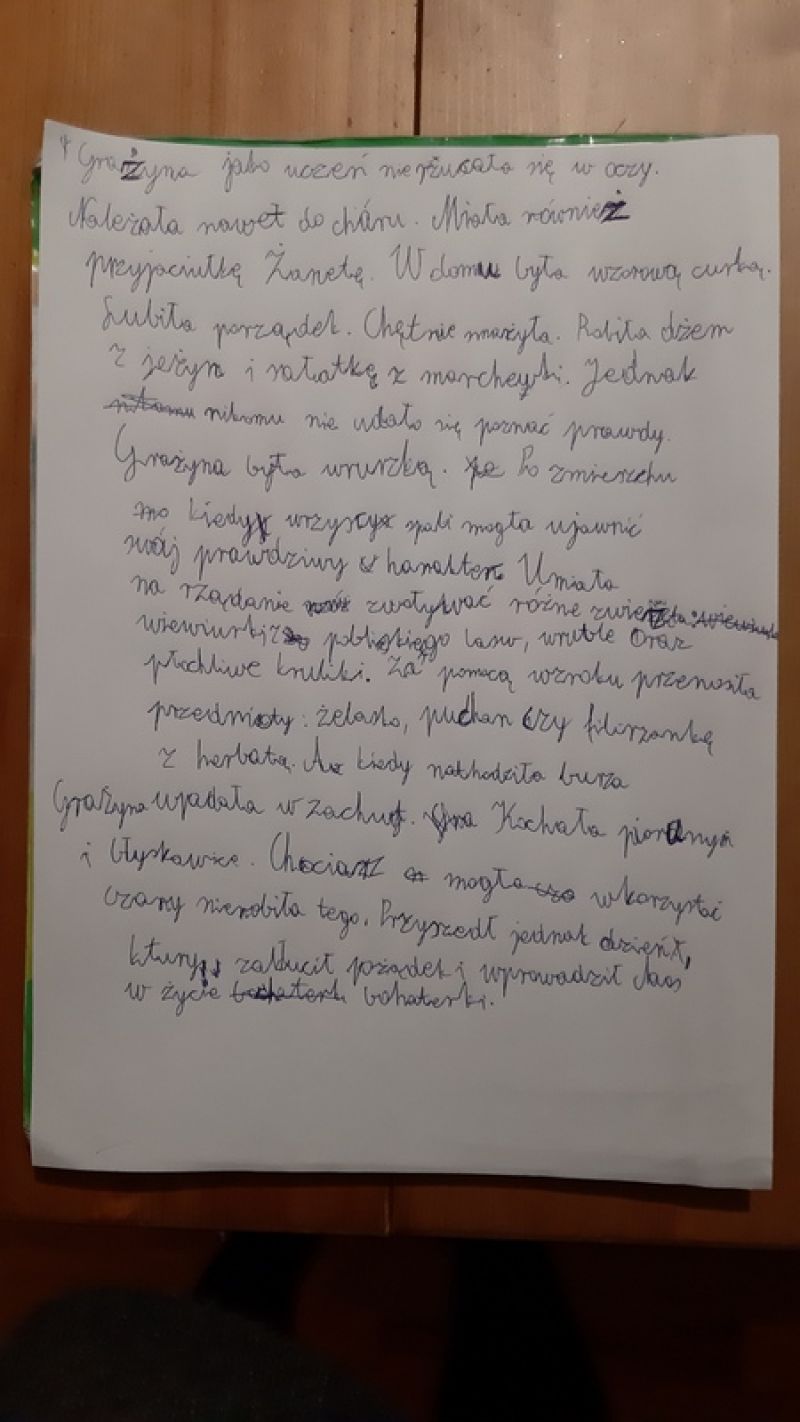 Grażyna jako uczeń nierzucała się w oczy.
Należała nawet do churu. Miała również
przyjaciułkę Żanetę. W domu była wzorową curką.
Lubiła porządek. Chętnie smażyła. Robiła dżem
z jeżyn i sałatkę z marchewki. Jednak
nikomu nie udało się poznać prawdy.
Grażyna była wruszką. Po zmierzchu
kiedy wrzyscy spali mogła ujawnić
swój prawdziwy charakter. Umiała
na rządanie zwoływać różne zwierzęta: wiewiurki
wiewiurki z pobliskiego lasu, wruble oraz
płochliwe kruliki. Za pomocą wzroku przenosiła
przedmioty: żelasko, puchar czy filirzankę
z herbatą. A kiedy nathodziła burza
Grażyna wpadała w zachwyt. Kochała pioruny
i błyskawice. Chociarz mogła wkorzystać
czary nierobiła tego. Przyszedł jednak dzień,
ktury zakłucił pożądek i wprowadził chaos
w życie bohaterki.